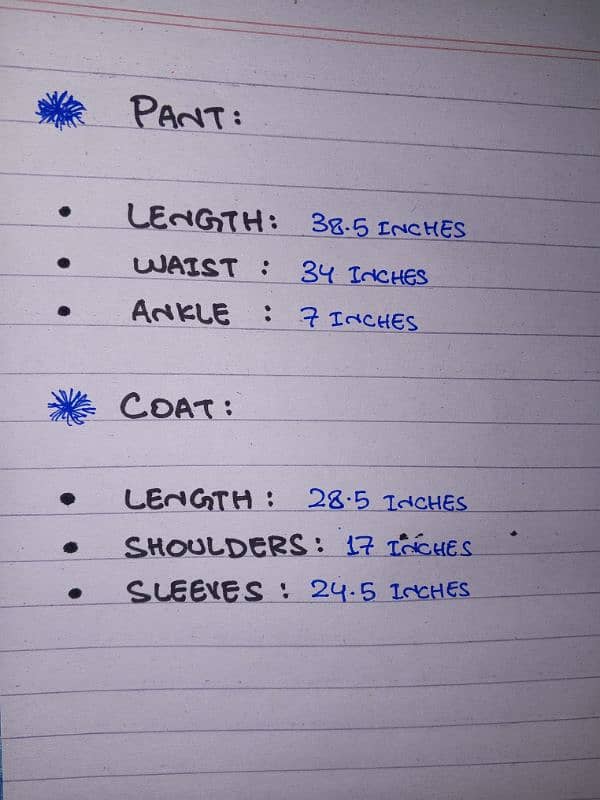 PANT:
• LENGTH: 38.5 INCHES
• WAIST : 34 INCHES
• ANKLE : 7 INCHES
COAT:
• LENGTH: 28.5 INCHES
• SHOULDERS: 17 INCHES
• SLEEVES: 24.5 INCHES